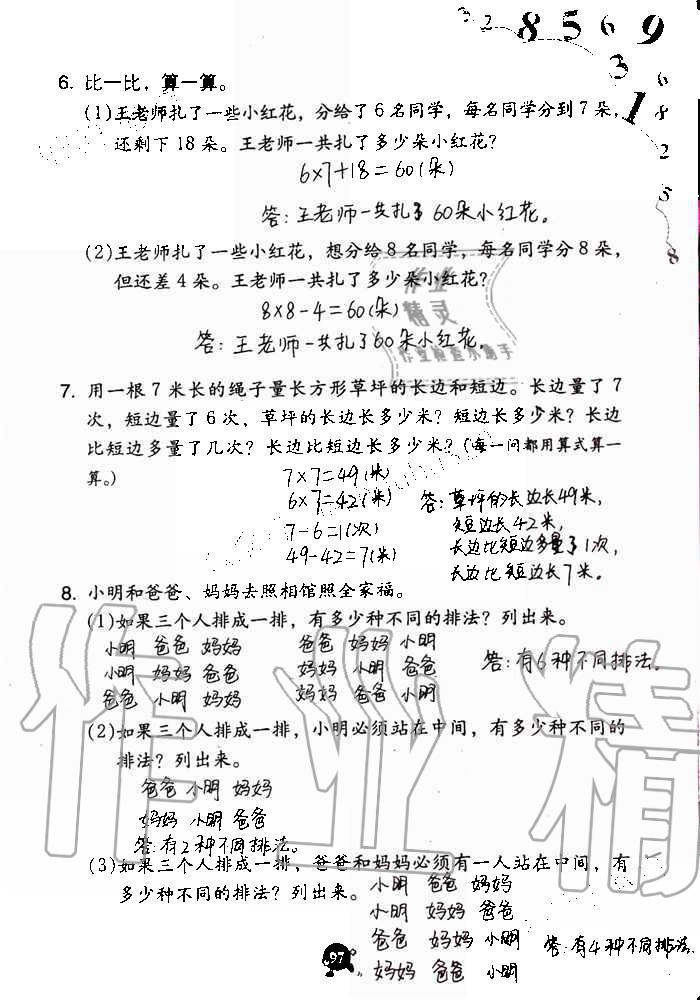 3 2 8 5 6 9
3 6
1 8
2
5
8
6. 比一比，算一算。
(1)王老师扎了一些小红花，分给了6名同学，每名同学分到7朵，
还剩下18朵。王老师一共扎了多少朵小红花？
6×7+18=60(朵)
答：王老师一共扎了60朵小红花。
(2)王老师扎了一些小红花，想分给8名同学，每名同学分8朵，
但还差4朵。王老师一共扎了多少朵小红花？
8×8-4=60(朵)
答：王老师一共扎了60朵小红花。
作业
精灵
作业检查小助手
7. 用一根7米长的绳子量长方形草坪的长边和短边。长边量了7
次，短边量了6次，草坪的长边长多少米？短边长多少米？长边
比短边多量了几次？长边比短边长多少米？(每一问都用算式算一
算。)
7×7=49(米)
6×7=42(米)
7-6=1(次)
49-42=7(米)
答：草坪的长边长49米，
短边长42米，
长边比短边多量了1次，
长边比短边长7米。
8. 小明和爸爸、妈妈去照相馆照全家福。
(1)如果三个人排成一排，有多少种不同的排法？列出来。
小明 爸爸 妈妈 爸爸 妈妈 小明
小明 妈妈 爸爸 妈妈 小明 爸爸
爸爸 小明 妈妈 妈妈 爸爸 小明
答：有6种不同排法。
(2)如果三个人排成一排，小明必须站在中间，有多少种不同的
排法？列出来。
爸爸 小明 妈妈
妈妈 小明 爸爸
答：有2种不同排法。
(3)如果三个人排成一排，爸爸和妈妈必须有一人站在中间，有
多少种不同的排法？列出来。
小明 爸爸 妈妈
小明 妈妈 爸爸
爸爸 妈妈 小明
妈妈 爸爸 小明
答：有4种不同排法.
97
作业精